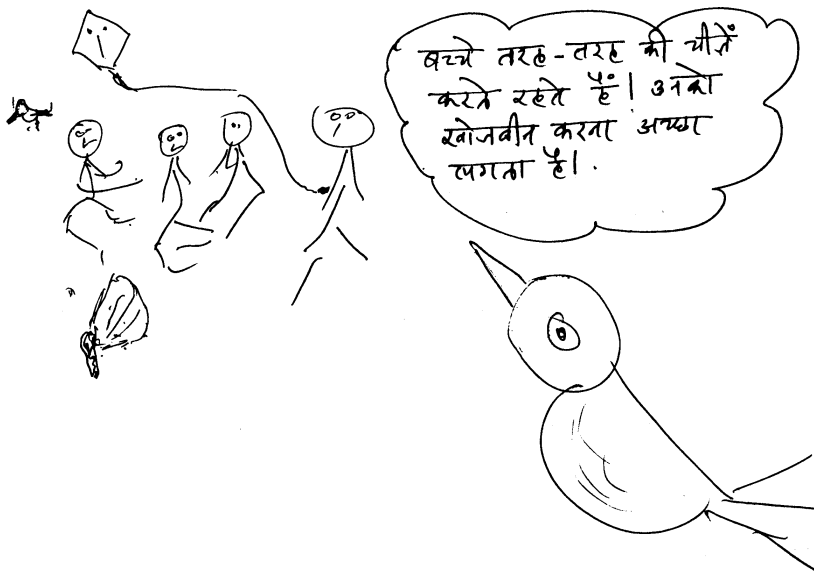 बच्चे तरह-तरह की चीज़ें
करते रहते हैं। उनको
खोजबीन करना अच्छा
लगता है।